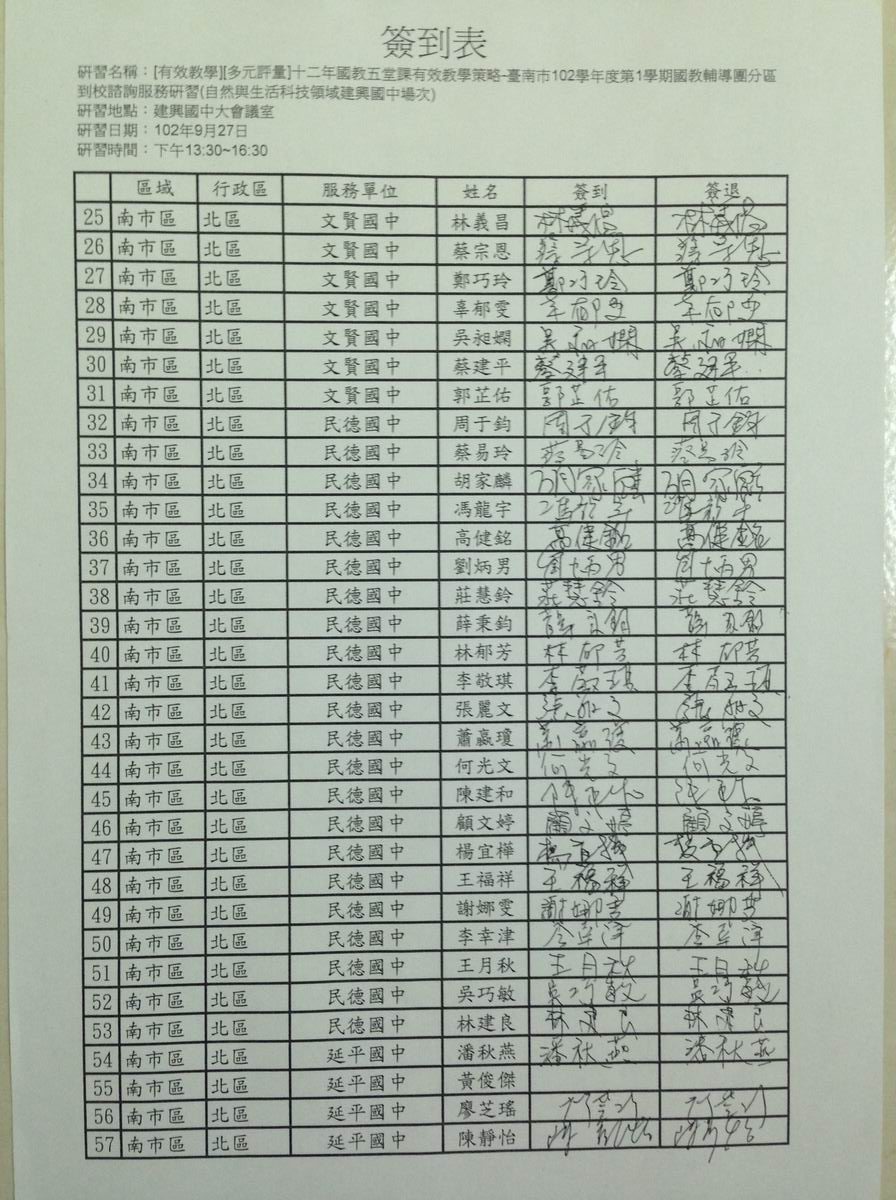 簽到表
研習名稱：[有效教學][多元評量]十二年國教五堂課有效教學策略-臺南市102學年度第1學期國教輔導團分區
到校諮詢服務研習(自然與生活科技領域建興國中場次)
研習地點：建興國中大會議室
研習日期：102年9月27日
研習時間：下午13:30~16:30
區域 行政區 服務單位 姓名 簽到 簽退
25 南市區 北區 文賢國中 林義昌 林義昌 林義昌
26 南市區 北區 文賢國中 蔡宗恩 蔡宗恩 蔡宗恩
27 南市區 北區 文賢國中 鄭巧玲 鄭巧玲 鄭巧玲
28 南市區 北區 文賢國中 辜郁雯 辜郁雯 辜郁雯
29 南市區 北區 文賢國中 吳昶嫻 吳昶嫻 吳昶嫻
30 南市區 北區 文賢國中 蔡建平 蔡建平 蔡建平
31 南市區 北區 文賢國中 郭芷佑 郭芷佑 郭芷佑
32 南市區 北區 民德國中 周于鈞 周于鈞 周于鈞
33 南市區 北區 民德國中 蔡易玲 蔡易玲 蔡易玲
34 南市區 北區 民德國中 胡家麟 胡家麟 胡家麟
35 南市區 北區 民德國中 馮龍宇 馮龍宇 馮龍宇
36 南市區 北區 民德國中 高健銘 高健銘 高健銘
37 南市區 北區 民德國中 劉炳男 劉炳男 劉炳男
38 南市區 北區 民德國中 莊慧鈴 莊慧鈴 莊慧鈴
39 南市區 北區 民德國中 薛秉鈞 薛秉鈞 薛秉鈞
40 南市區 北區 民德國中 林郁芳 林郁芳 林郁芳
41 南市區 北區 民德國中 李敬琪 李敬琪 李敬琪
42 南市區 北區 民德國中 張麗文 張麗文 張麗文
43 南市區 北區 民德國中 蕭嬴瓊 蕭嬴瓊 蕭嬴瓊
44 南市區 北區 民德國中 何光文 何光文 何光文
45 南市區 北區 民德國中 陳建和
46 南市區 北區 民德國中 顧文婷 顧文婷 顧文婷
47 南市區 北區 民德國中 楊宜樺 楊宜樺 楊宜樺
48 南市區 北區 民德國中 王福祥 王福祥 王福祥
49 南市區 北區 民德國中 謝娜雯 謝娜雯 謝娜雯
50 南市區 北區 民德國中 李幸津 李幸津 李幸津
51 南市區 北區 民德國中 王月秋 王月秋 王月秋
52 南市區 北區 民德國中 吳巧敏 吳巧敏 吳巧敏
53 南市區 北區 民德國中 林建良 林建良 林建良
54 南市區 北區 延平國中 潘秋燕 潘秋燕 潘秋燕
55 南市區 北區 延平國中 黃俊傑
56 南市區 北區 延平國中 廖芝瑤
57 南市區 北區 延平國中 陳靜怡 陳靜怡 陳靜怡